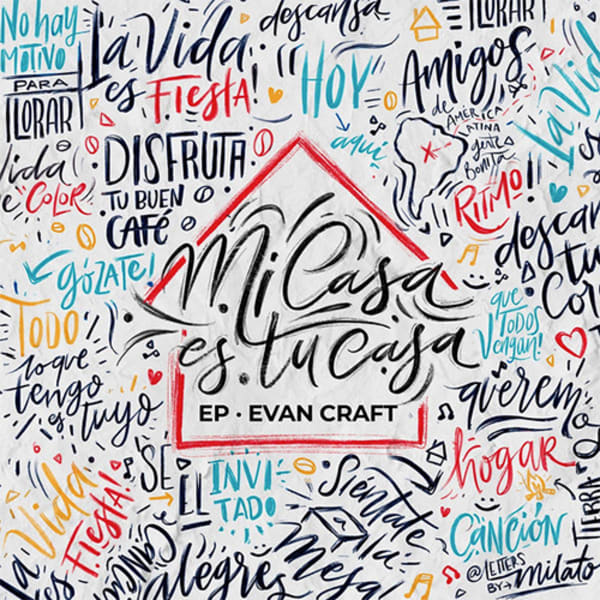 No hay
MOTIVO
PARA
LLORAR
La Vida
es FIESTA!
descansa
HOY
aquí
LLORAR
AMIGOS
de
AMÉRICA
LATINA
gente
Bonita
La Vida
Vida
COLOR
DISFRUTA
TU BUEN
CAFÉ
RITMO!
descansa
tu
GÓZATE!
TODO
lo que
tengo
es tuyo
Mi Casa
es tu casa
EP · EVAN CRAFT
que
TODOS
Vengan!
querem
hogar
SÉ
EL
INVI
TADO
Siéntate
a la
mesa
La Vida
es FIESTA!
alegres
CANCIÓN
TIERRA
@LETTERS
BY milato